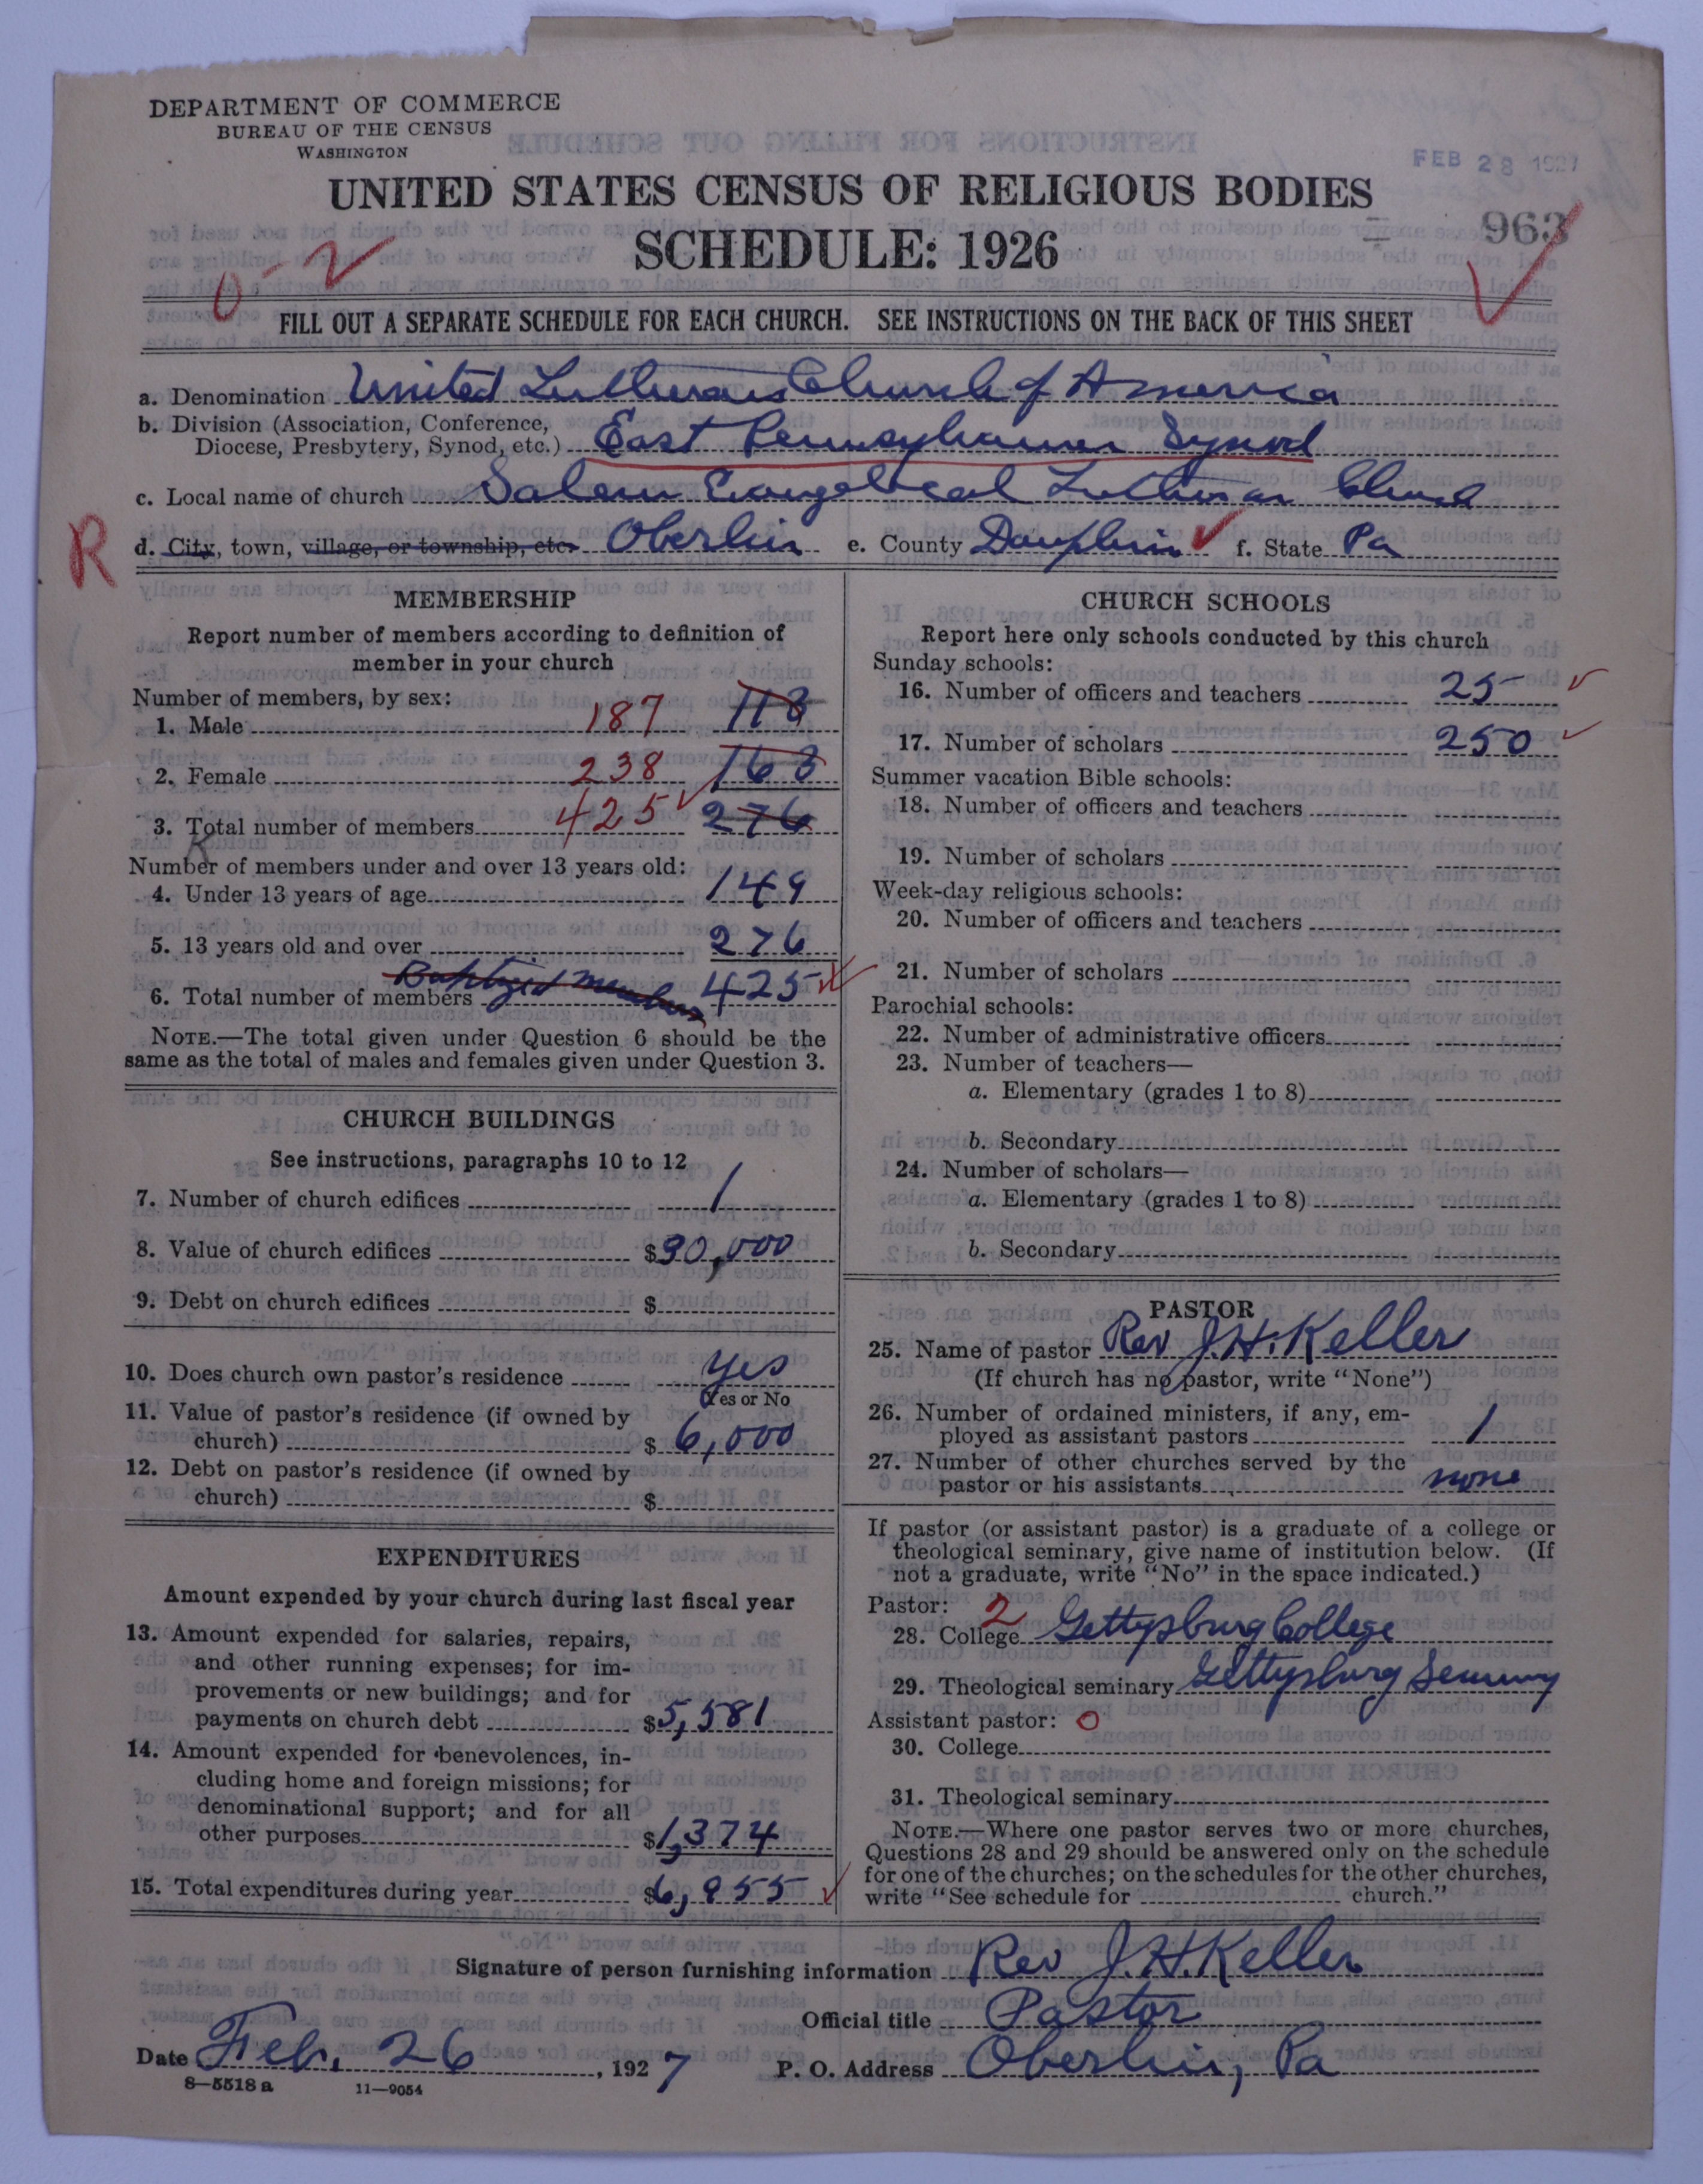 DEPARTMENT OF COMMERCE
BUREAU OF THE CENSUS
WASHINGTON
FEB 28 1927
UNITED STATES CENSUS OF RELIGIOUS BODIES
SCHEDULE: 1926
963
0-2
FILL OUT A SEPARATE SCHEDULE FOR EACH CHURCH. SEE INSTRUCTIONS ON THE BACK OF THIS SHEET
a. Denomination United Lutheran Church of America
b. Division (Association, Conference,
Diocese, Presbytery, Synod, etc.) East Pennsylvania Synod
c. Local name of church Salem Evangelical Lutheran Church
R
d. City, town, village, or township, etc. Oberlin e. County Dauphin f. State Pa
MEMBERSHIP
Report number of members according to definition of
member in your church
Number of members, by sex:
1. Male 187 113
2. Female 238 163
3. Total number of members 425 276
Number of members under and over 13 years old:
4. Under 13 years of age 149
5. 13 years old and over 276
Baptized members
6. Total number of members 425
NOTE.—The total given under Question 6 should be the
same as the total of males and females given under Question 3.
CHURCH BUILDINGS
See instructions, paragraphs 10 to 12
7. Number of church edifices 1
8. Value of church edifices $30,000
9. Debt on church edifices $
10. Does church own pastor's residence yes
Yes or No
11. Value of pastor's residence (if owned by
church) $ 6,000
12. Debt on pastor's residence (if owned by
church) $
EXPENDITURES
Amount expended by your church during last fiscal year
13. Amount expended for salaries, repairs,
and other running expenses; for im-
provements or new buildings; and for
payments on church debt $5,581
14. Amount expended for benevolences, in-
cluding home and foreign missions; for
denominational support; and for all
other purposes $1,374
15. Total expenditures during year $6,955
CHURCH SCHOOLS
Report here only schools conducted by this church
Sunday schools:
16. Number of officers and teachers 25
17. Number of scholars 250
Summer vacation Bible schools:
18. Number of officers and teachers
19. Number of scholars
Week-day religious schools:
20. Number of officers and teachers
21. Number of scholars
Parochial schools:
22. Number of administrative officers
23. Number of teachers—
a. Elementary (grades 1 to 8)
b. Secondary
24. Number of scholars—
a. Elementary (grades 1 to 8)
b. Secondary
PASTOR
25. Name of pastor Rev J.H. Keller
(If church has no pastor, write "None")
26. Number of ordained ministers, if any, em-
ployed as assistant pastors 1
27. Number of other churches served by the
pastor or his assistants none
If pastor (or assistant pastor) is a graduate of a college or
theological seminary, give name of institution below. (If
not a graduate, write "No" in the space indicated.)
Pastor: 2
28. College Gettysburg College
29. Theological seminary Gettysburg Seminary
Assistant pastor: 0
30. College
31. Theological seminary
NOTE.—Where one pastor serves two or more churches,
Questions 28 and 29 should be answered only on the schedule
for one of the churches; on the schedules for the other churches,
write "See schedule for church."
Signature of person furnishing information Rev J.H. Keller
Official title Pastor
Date Feb. 26, 1927 P. O. Address Oberlin, Pa
8—5518 a 11—9054